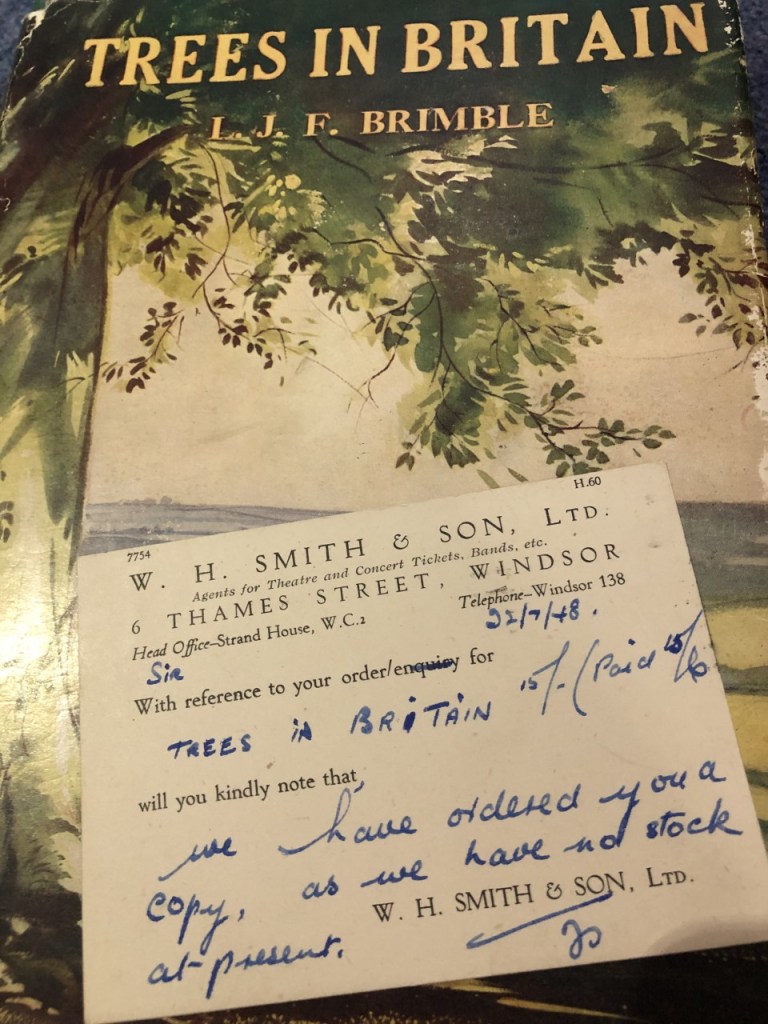 TREES IN BRITAIN
L. J. F. BRIMBLE
H.60
7754
W. H. SMITH & SON, LTD.
Agents for Theatre and Concert Tickets, Bands, etc.
6 THAMES STREET, WINDSOR
Head Office–Strand House, W.C.2
Telephone–Windsor 138
22/7/48.
Sir
With reference to your order/enquiry for
TREES IN BRITAIN 15/- (Paid 15/6
will you kindly note that,
we have ordered you a
copy, as we have no stock
W. H. SMITH & SON, LTD.
at present.